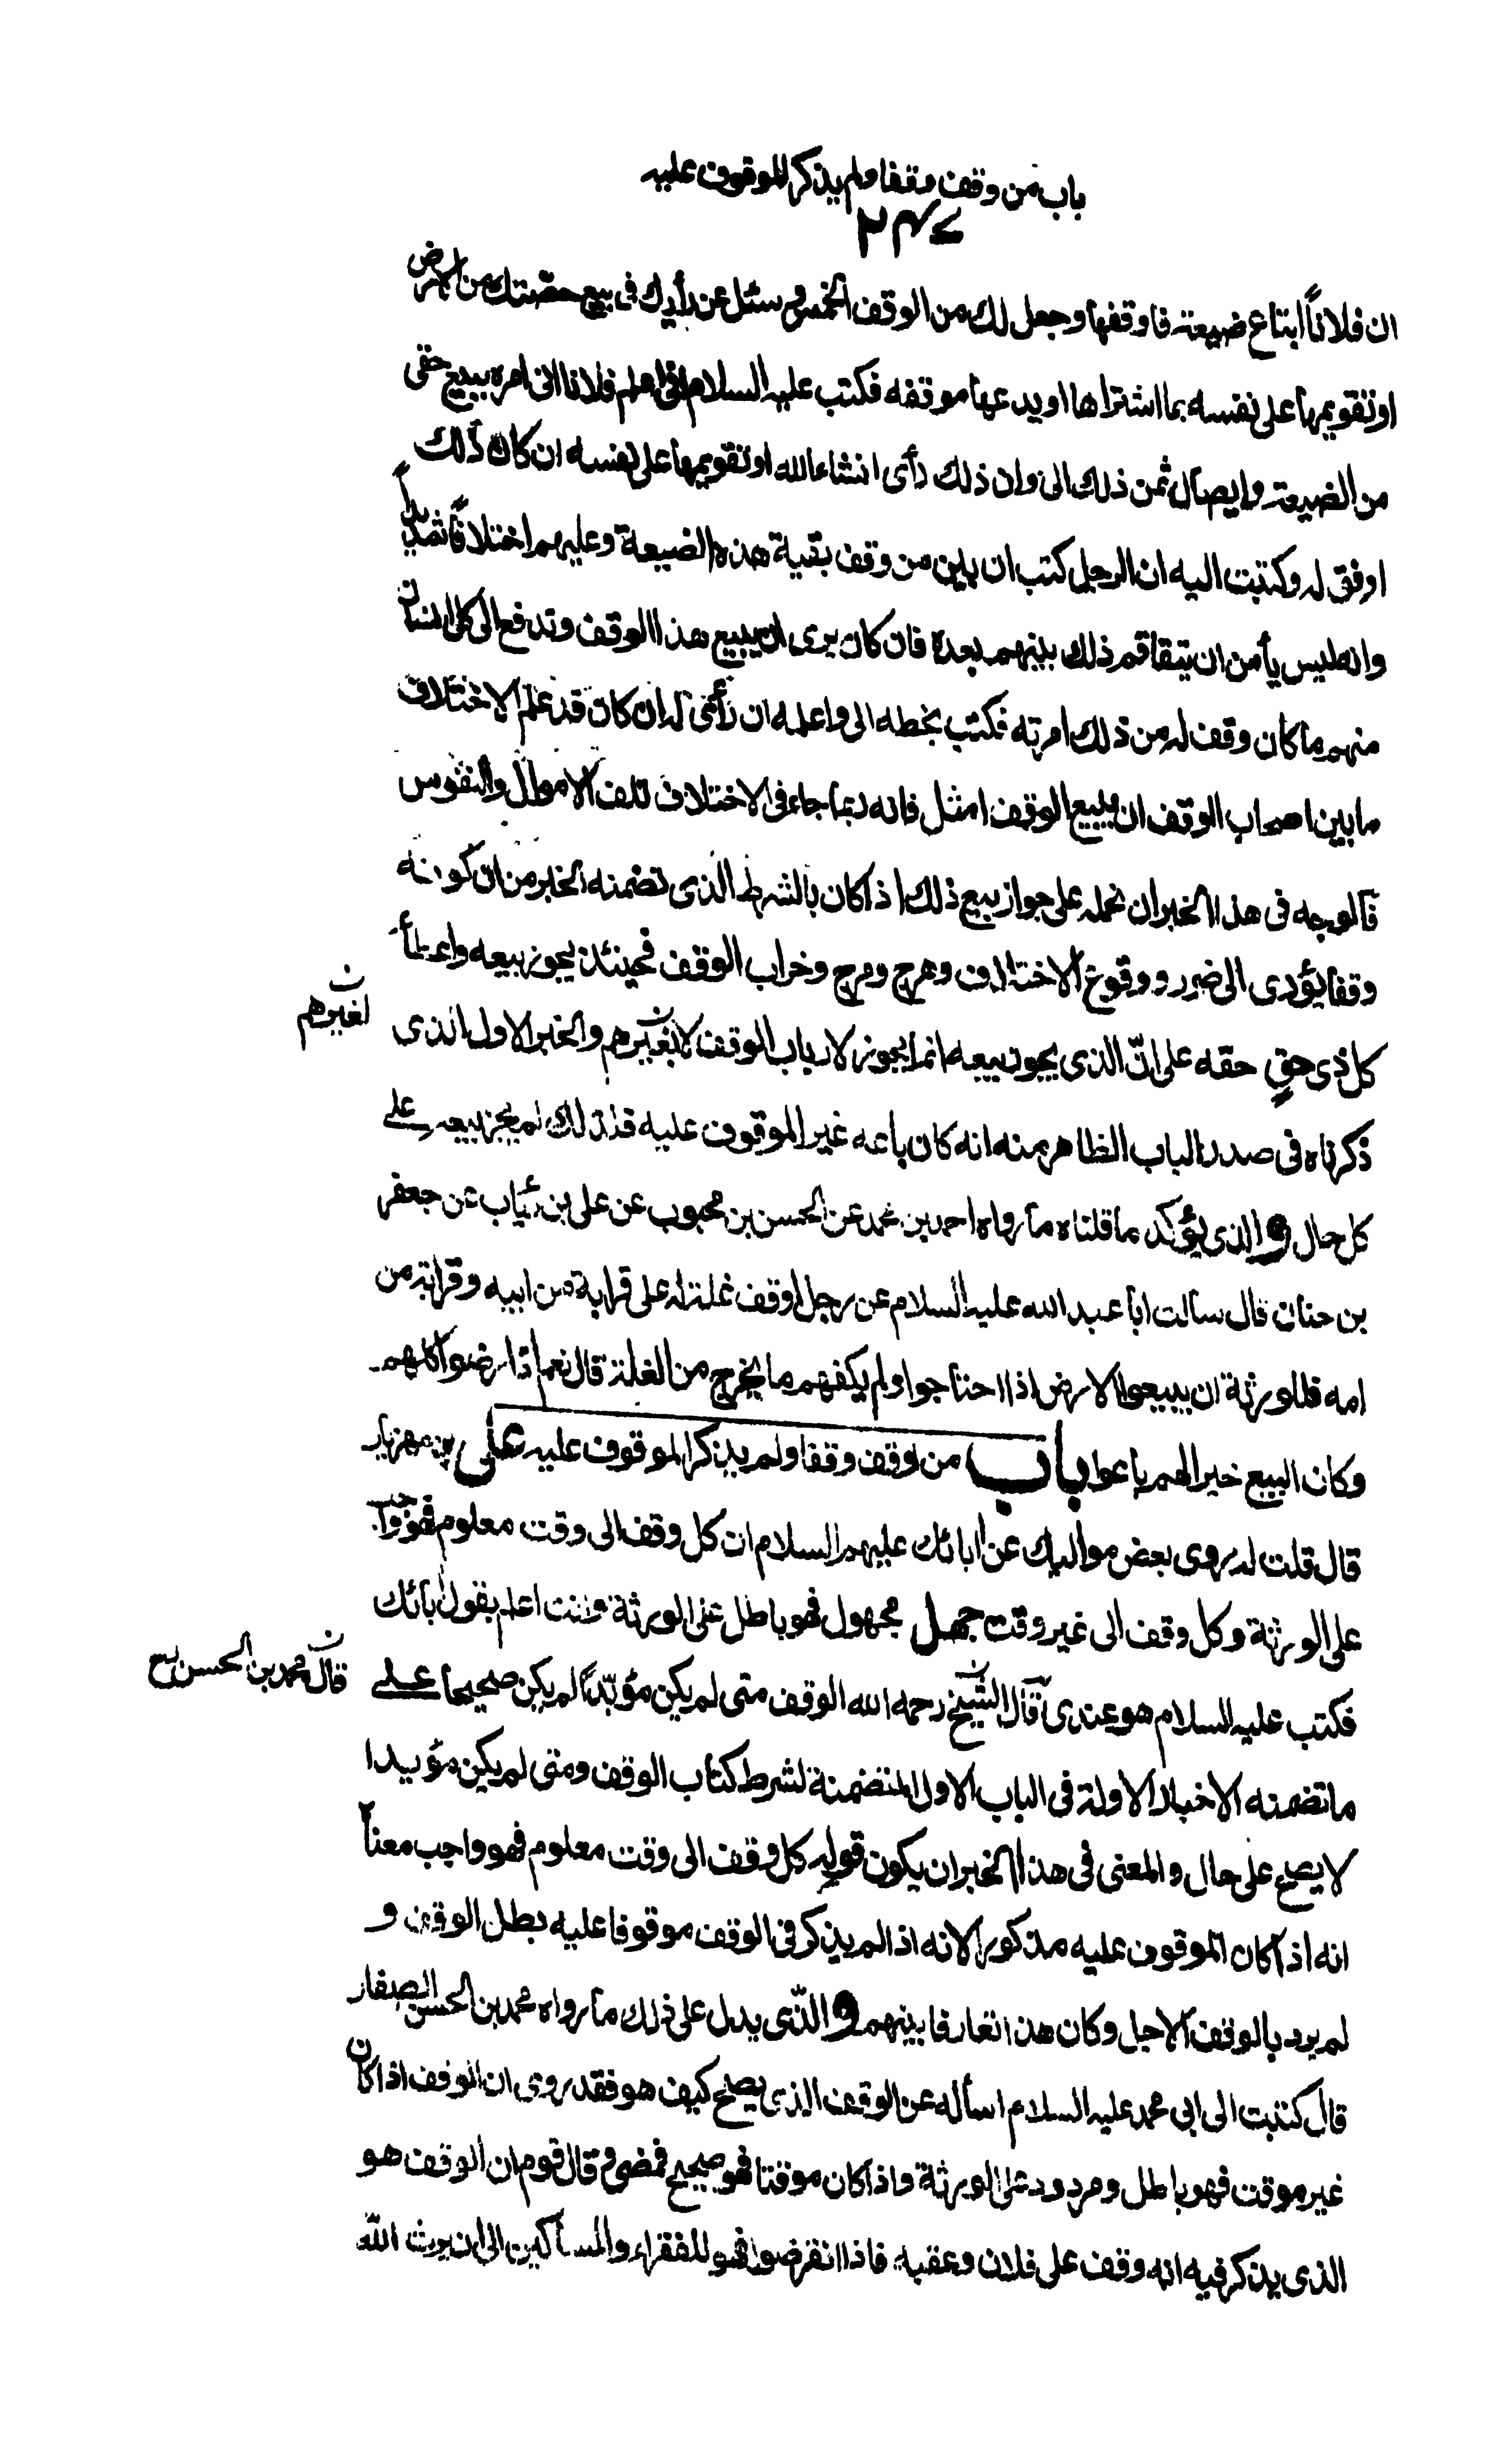 باب من وقف وقفا ولم يذكر الموقوف عليه
ان فلاناً ابتاع ضيعة فاوقفها وجعل لك من الوقف الخمس و سئل عن رأيك فى بيع حصتك من الارض
او تقويمها على نفسه بما اشتراها او يدعها موقفه فكتب عليه السلام الى اعلم فلانا انى امره ببيع حقى
من الضيعة وايصال ثمن ذلك الى وان ذلك رأى انشاءالله او تقويمها على نفسه ان كان ذلك
اوفق له وكتبت اليه ان الرجل كتب ان بين من وقف بقية هذه الضيعة وعليهم اختلافاً شديداً
وانه ليس يأمن ان يتفاقم ذلك بينهم بعده فان كان يرى ان يبيع هذا الوقف وتدفع الى كل انسان
منهم ما كان وقف له من ذلك امرته فكتب بخطه الى واعلمه ان رأى له ان كان قد علم الاختلاف
ما بين اصحاب الوقف ان يبيع الوقف امثل فانه ربما جاء فى الاختلاف تلف الاموال والنفوس
فالوجه فى هذا الخبر ان نحمله على جواز بيع ذلك اذا كان بالشرط الذى تضمنه الخبر من ان كونه
وقفا يؤدى الى ضرر ووقوع الاختلاف وهرج ومرج وخراب الوقف فحينئذ يجوز بيعه واعطاء
كل ذى حق حقه على انّ الذى يجوز بيعه انما يجوز لارباب الوقف لا بغيرهم والخبر الاول الذى
لغيرهم ن
ذكرناه فى صدر الباب الظاهر منه انه كان باعه غير الموقوف عليه فلذلك لم يجز بيعه على
كل حال والذى يؤكد ما قلناه ما رواه احمد بن محمد عن الحسن بن محبوب عن على بن رئاب عن جعفر
بن حنان قال سالت ابا عبد الله عليه السلام عن رجل اوقف غلة له على قرابة من ابيه وقرابة من
امه فللورثة ان يبيعوا الارض اذا احتاجوا ولم يكفهم ما يخرج من الغلة قال نعم اذا رضوا كلهم
وكان البيع خيرا لهم باعوا باب من اوقف وقفا ولم يذكر الموقوف عليه على بن مهزيار
قال قلت له روى بعض مواليك عن ابائك عليهم السلام ان كل وقف الى وقت معلوم فهو واجب
على الورثة وكل وقف الى غير وقت جهل مجهول فهو باطل على الورثة وانت اعلم بقول ابائك
فكتب عليه السلام هو عندى قال الشيخ رحمه الله الوقف متى لم يكن مؤبّداً لم يكن صحيحا على
قال محمد بن الحسن رح ن
ما تضمنه الاخبار الاولة فى الباب الاول المتضمنة لشرط كتاب الوقف ومتى لم يكن مؤبدا
لا يصح على حال والمعنى فى هذا الخبر ان يكون قوله كل وقف الى وقت معلوم فهو واجب معناه
انه اذا كان الموقوف عليه مذكورا لانه اذا لم يذكر فى الوقف موقوفا عليه بطل الوقف و
لم يرد بالوقف الاجل وكان هذا تعارفا بينهم والذى يدل على ذلك ما رواه محمد بن الحسن الصفار
قال كتبت الى ابى محمد عليه السلام اسأله عن الوقف الذى يصح كيف هو فقد روى ان الوقف اذا كان
غير موقت فهو باطل ومردود على الورثة واذا كان موقتا فهو صحيح فمضى وقال قوم ان الوقف هو
الذى يذكر فيه انه وقف على فلان وعقبه فاذا انقرضوا فهو للفقراء والمساكين الى ان يرث الله